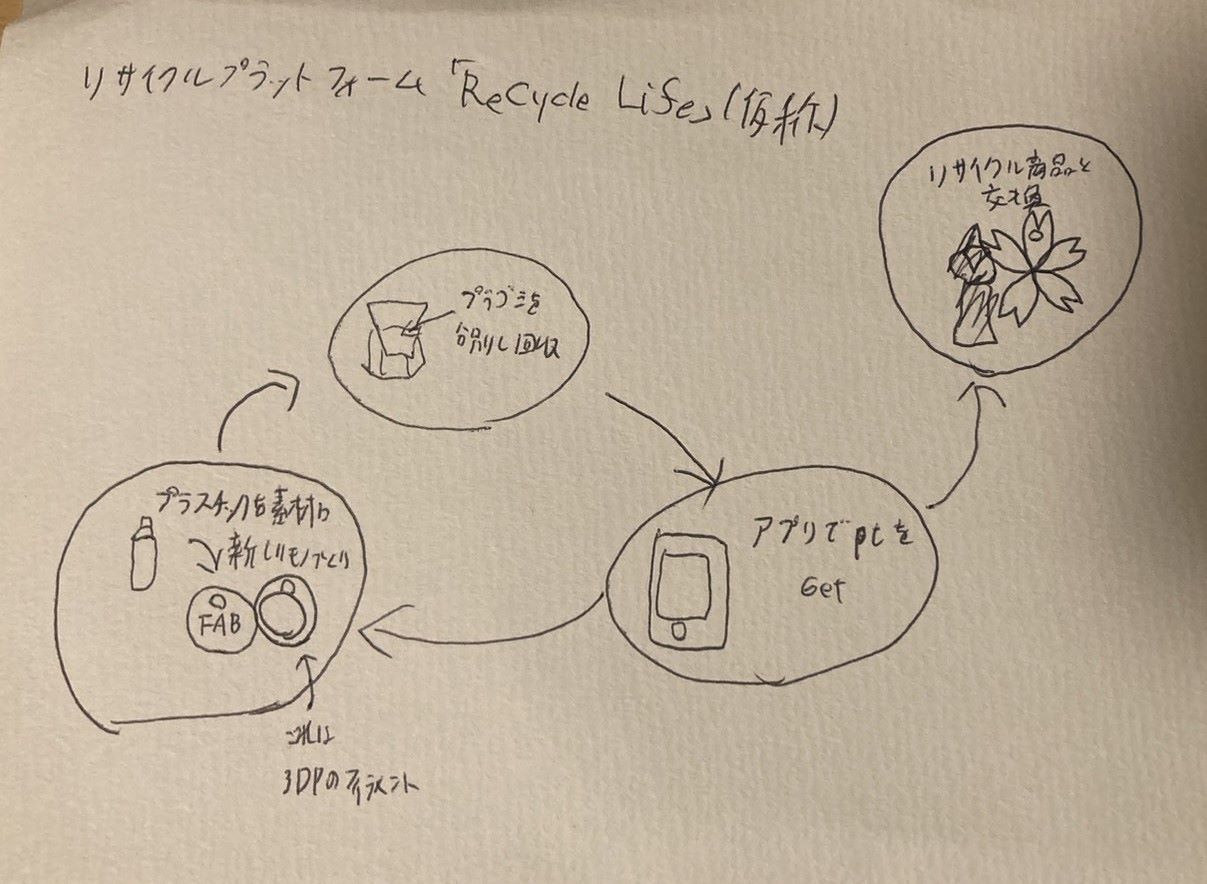 リサイクルプラットフォーム「ReCycle Life」(仮称)
リサイクル商品と
交換
プラゴミを
分別し回収
アプリでptを
Get
プラスチックを素材に
新しいモノづくり
FAB
これは
3DPのフィラメント